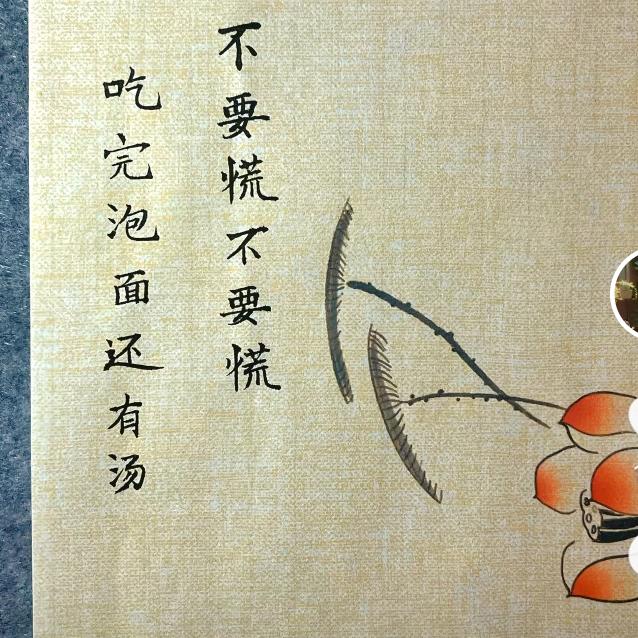 不要慌不要慌
吃完泡面还有汤